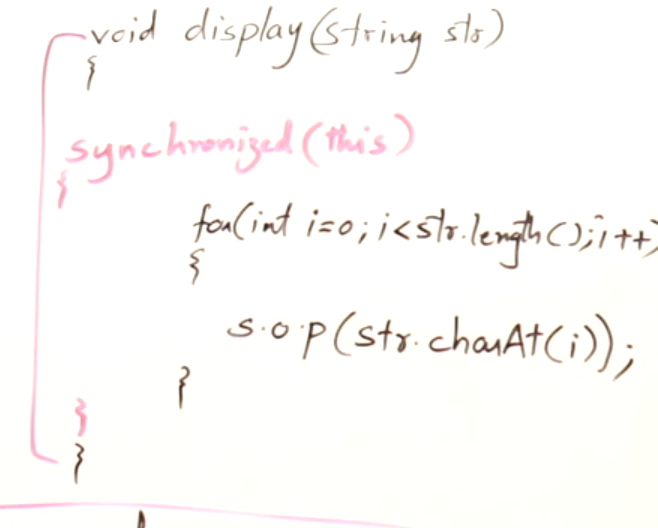 void display(string str)
{
synchronized(this)
{
for(int i=0; i<str.length();i++)
{
s.o.p(str.charAt(i));
}
}
}